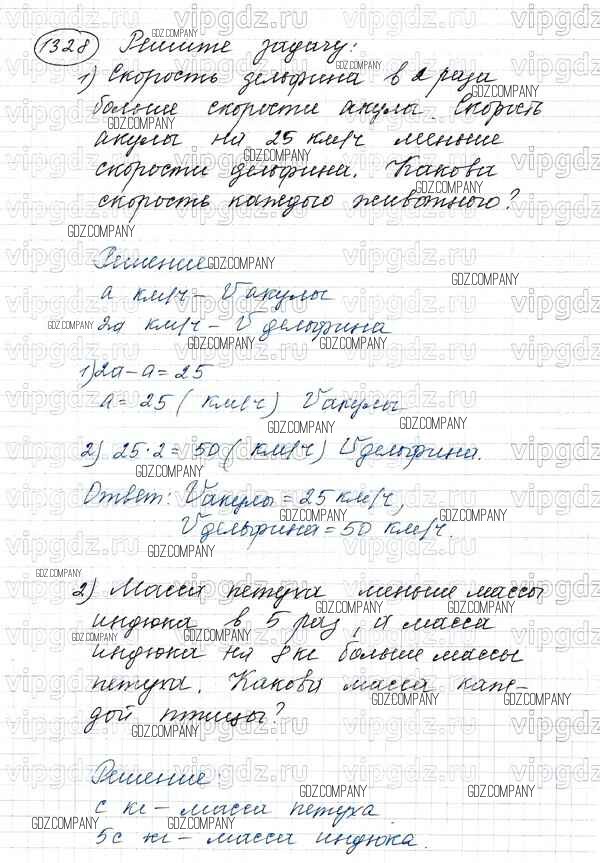 1328 Решите задачу:
1) Скорость дельфина в 2 раза
больше скорости акулы. Скорость
акулы на 25 км/ч меньше
скорости дельфина. Какова
скорость каждого животного?
Решение
a км/ч – Vакулы
2a км/ч – Vдельфина
1) 2a – a = 25
a = 25 ( км/ч) Vакулы
2) 25·2 = 50 ( км/ч) Vдельфина.
Ответ: Vакулы = 25 км/ч,
Vдельфина = 50 км/ч.
2) Масса петуха меньше массы
индюка в 5 раз, а масса
индюка на 8 кг больше массы
петуха. Какова масса каж-
дой птицы?
Решение:
c кг – масса петуха
5c кг – масса индюка.